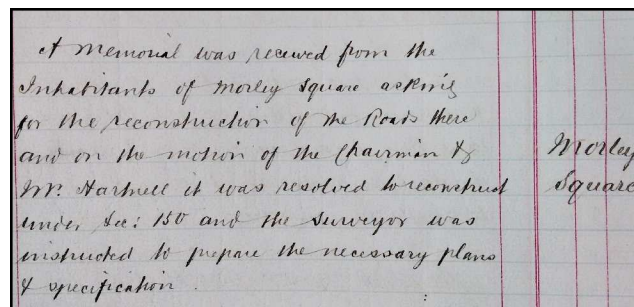 A Memorial was received from the
Inhabitants of Morley Square asking
for the reconstruction of the Roads there
and on the motion of the Chairman &
Mr. Hartnell it was resolved to reconstruct
under Sec: 150 and the Surveyor was
instructed to prepare the necessary plans
& specification.
Morley
Square